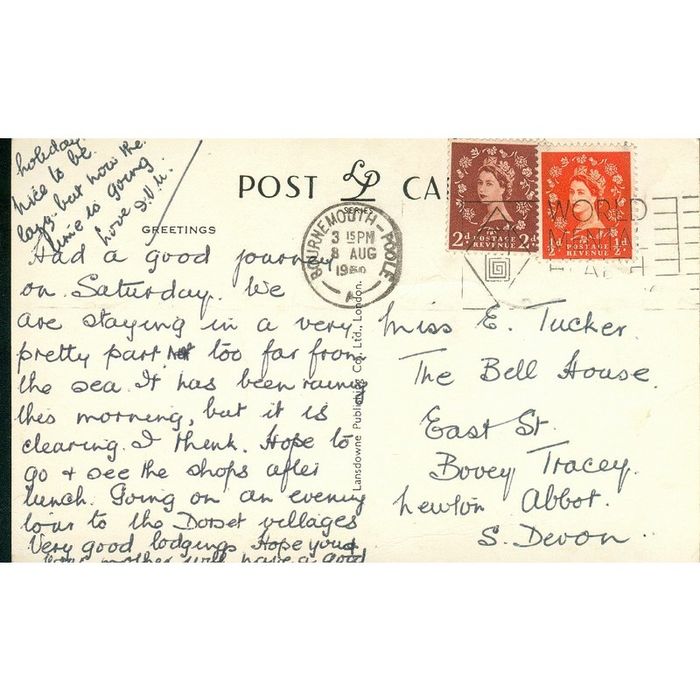 holiday.
nice to be
lazy. but now the
time is going
Love
POST CA
GREETINGS
SERIES
BOURNEMOUTH - POOLE
3 15 PM
8 AUG
A
2d POSTAGE REVENUE 2d
½d POSTAGE REVENUE ½d
WORLD
HEALTH
Had a good journey
on Saturday. We
are staying in a very
pretty part not too far from
the sea. It has been raining
this morning, but it is
clearing. I think. Hope to
go & see the shops after
lunch. Going on an evening
tour to the Dorset villages
Very good lodgings. Hope you &
your mother will have a good
Lansdowne Publishing Co., Ltd., London.
Miss E. Tucker.
The Bell House.
East St.
Bovey Tracey.
Newton Abbot.
S. Devon.